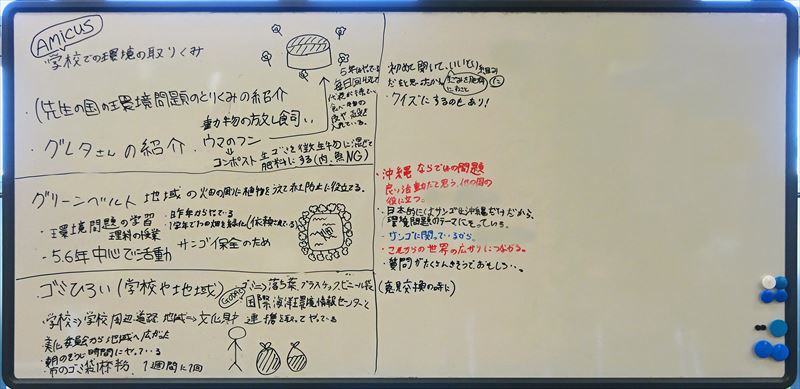 AMICUS
学校での環境の取りくみ
・先生の国の環境問題のとりくみの紹介
動物の放し飼
・グレタさんの紹介
・ウマのフン
5年生が
毎日
コンポスト
生ゴミを微生物に混ぜて
肥料にする(肉、魚NG)
グリーンベルト 地域の畑の周りに植物をうえて赤土防止に役立てる。
・環境問題の学習
理科の授業
・昨年からやっている
・5.6年中心で活動
サンゴ保全のため
・ゴミひろい(学校や地域)
ゴミ⇒落ち葉、プラスチック、ビニール袋
国際海洋環境情報センターと
連携をとってやっている
学校⇒学校周辺道路 地域⇒文化財
美化委員会から地域へ広がった
・朝のそうじ時間にやっている
・市のゴミ袋 1週間に1回
初めて聞いて、いいとり組み
だなと思ったから
生ゴミを肥料
にすること
・クイズにするのもあり!
・沖縄ならではの問題
良い活動だと思う、他の国の
役に立つ。
・日本的にはサンゴは沖縄だけだから、
環境問題のテーマにもっていける
・サンゴに関っているから。
・これからの世界の広がりにつながる。
・質問がたくさんきそうでおもしろい…。
(意見交換の時に)